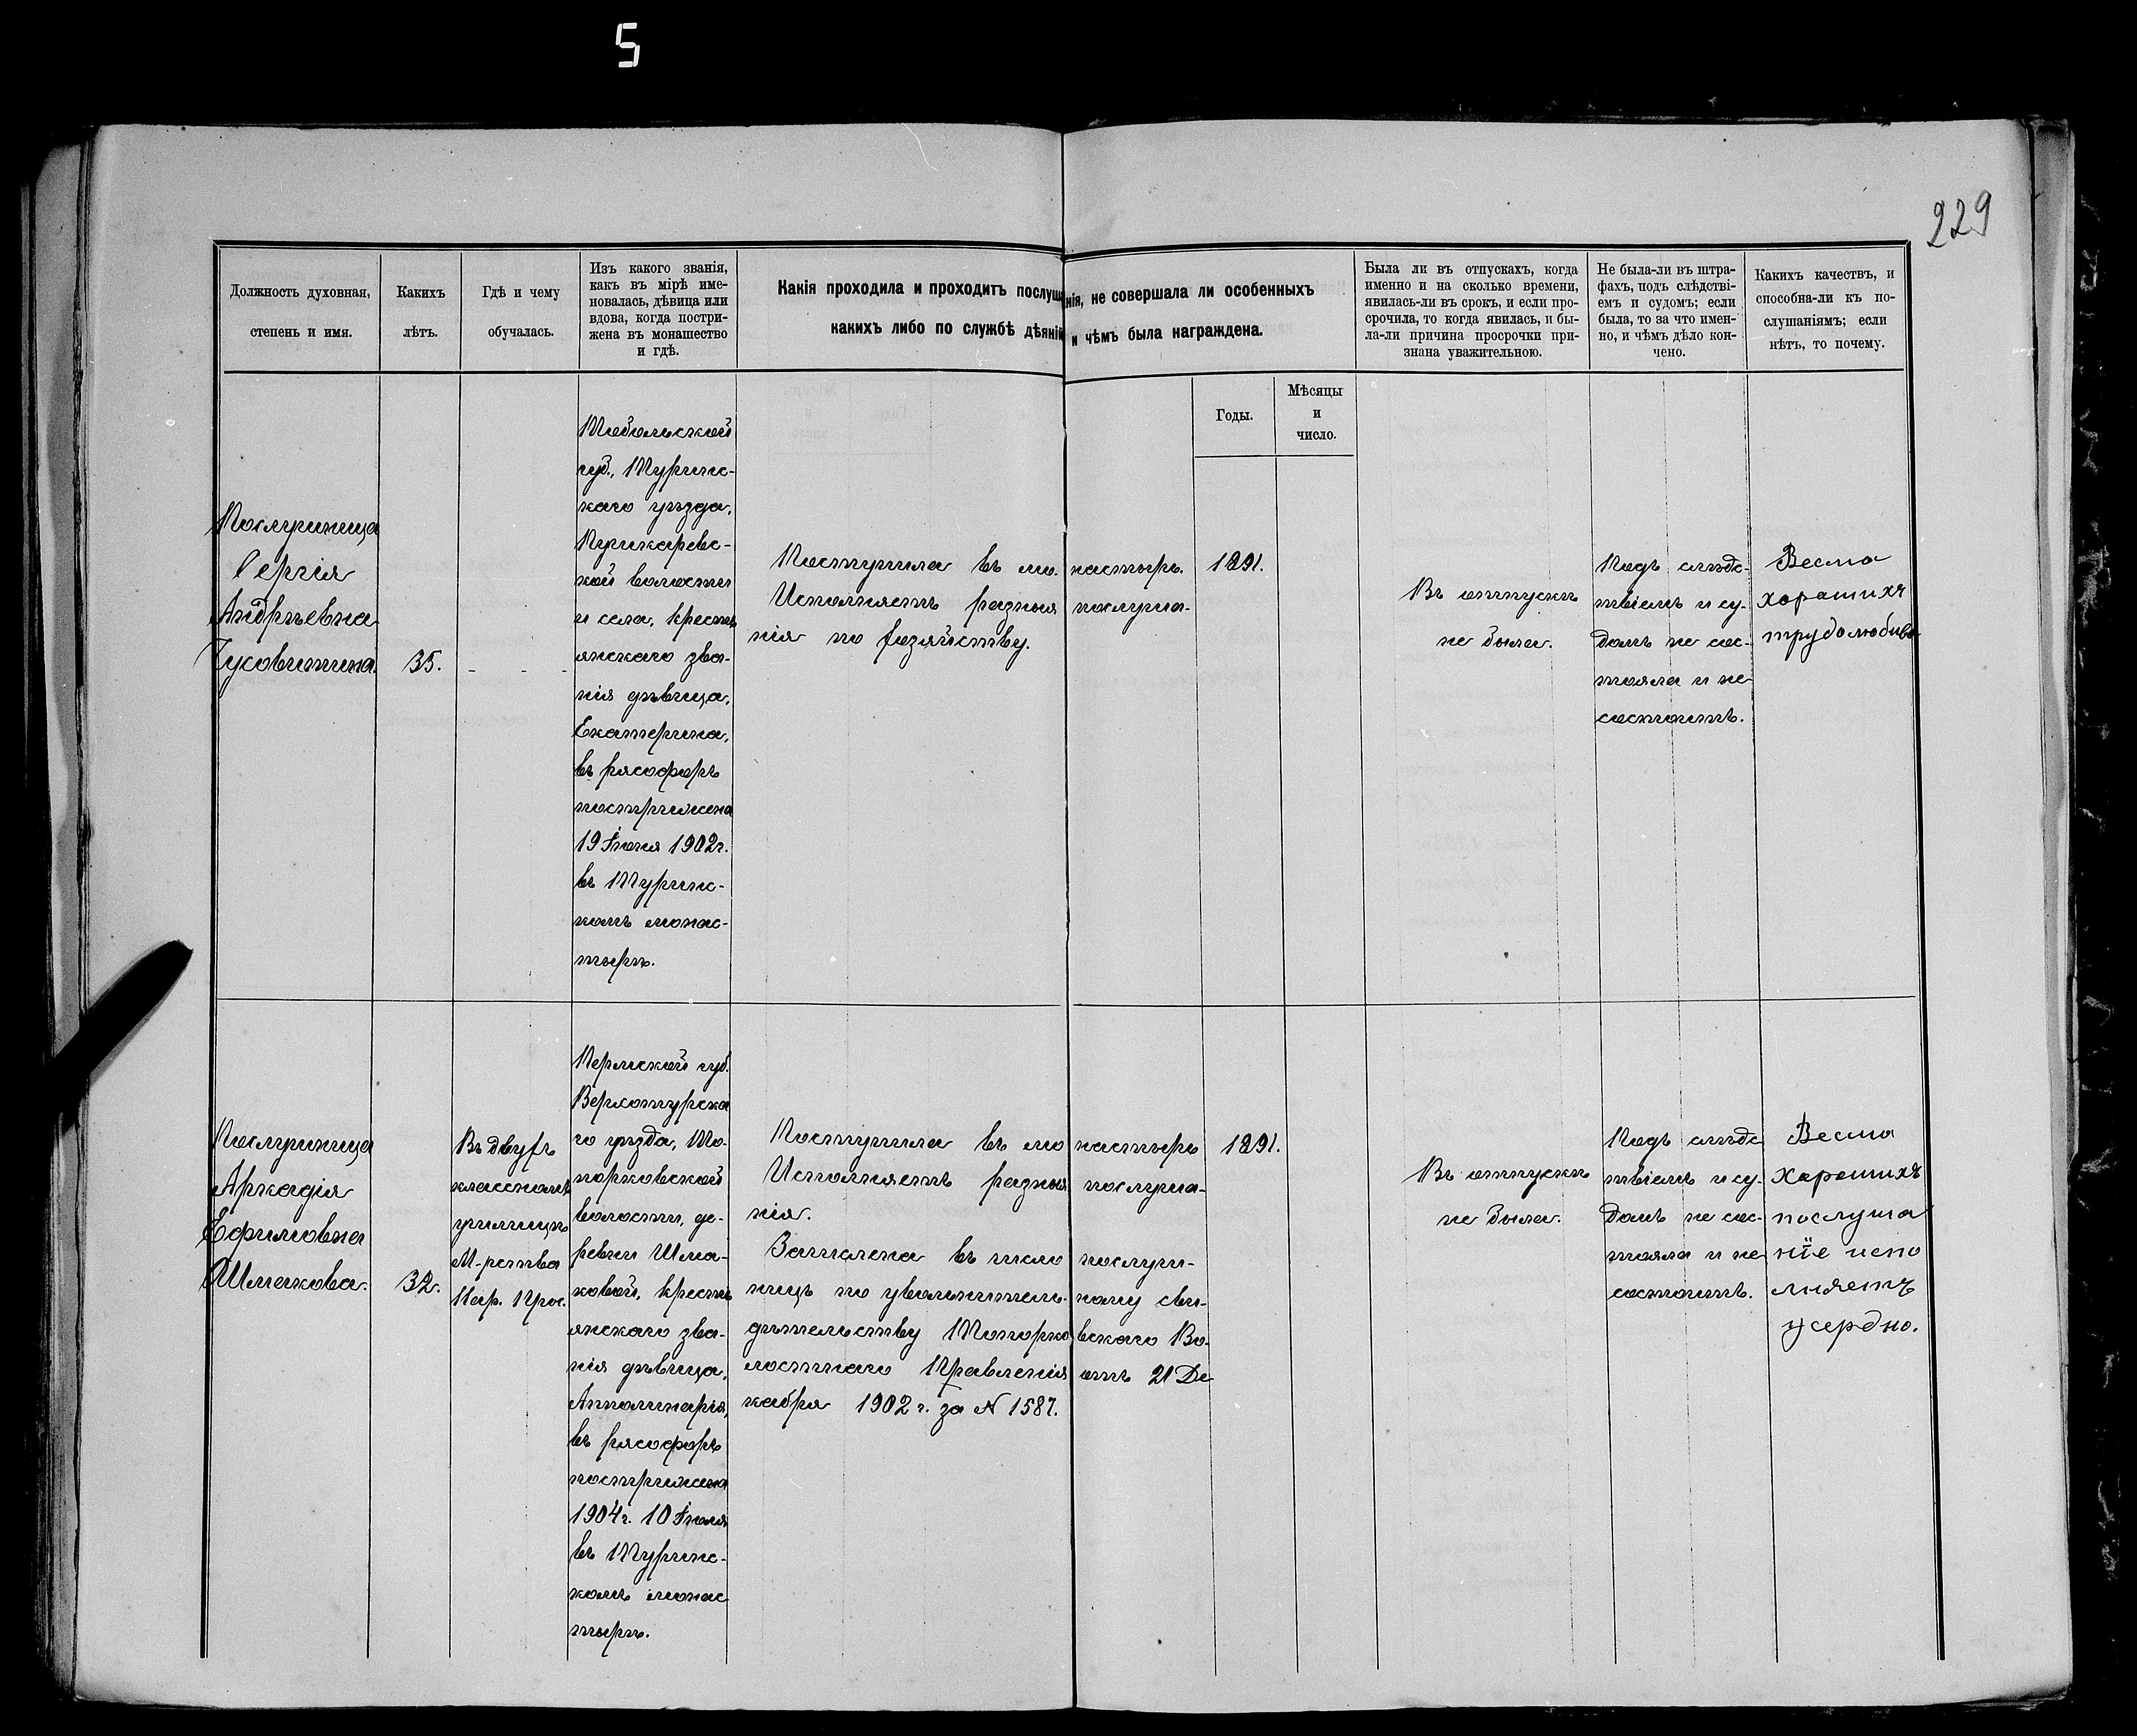 5
229
Должность духовная,
степень и имя.
Какихъ
лѣтъ.
Гдѣ и чему
обучалась.
Изъ какого званія,
какъ въ мірѣ име-
новалась, дѣвица или
вдова, когда постри-
жена въ монашество
и гдѣ.
Какія проходила и проходитъ послушанія, не совершала ли особенныхъ
какихъ либо по службѣ дѣяній и чѣмъ была награждена.
Годы.
Мѣсяцы
и
число.
Была ли въ отпускахъ, когда
именно и на сколько времени,
явилась-ли въ срокъ, и если про-
срочила, то когда явилась, и бы-
ла-ли причина просрочки при-
знана уважительною.
Не была-ли въ штра-
фахъ, подъ слѣдстві-
емъ и судомъ; если
была, то за что имен-
но, и чѣмъ дѣло кон-
чено.
Какихъ качествъ, и
способна-ли къ по-
слушаніямъ; если
нѣтъ, то почему.
Послушница
Сергія
Андрѣевна
Чусовитина.
35.
- - -
Тобольской
губ., Турин-
каго уѣзда,
кой волости
и села, крестья
янскаго зва-
нія дѣвица,
Екатерина,
въ рясофоръ
пострижена
19 Іюня 1902 г.
въ Туринс-
комъ монас-
тырѣ.
Поступила въ мо- настырь.
Исполняетъ разныя послуша-
нія по хозяйству.
1891.
Въ отпуску
не была.
Подъ слѣдс-
твіемъ и су-
домъ не сос-
тояла и не
состоитъ.
Весма
хорошихъ
трудолюбива
Послушница
Аркадія
Ефимовна
Шмакова.
32.
Въ двухъ
классномъ
училищѣ
М-рства
Нар. Прос.
Пермской губ.
Верхотурска
го уѣзда, То-
порковской
волости, де-
ревни Шма-
ковой, крестья
янскаго зва-
нія дѣвица,
Апполинарія,
въ рясофоръ
пострижена
1904 г. 10 Іюля
въ Туринс-
комъ монас
тырѣ.
Поступила въ мо настырь
Исполняетъ разныя послуша-
нія.
Зачислена въ число послуш-
ницъ по увольнительному сви-
дѣтельству Топорковскаго Во-
лостнаго Правленія отъ 21 Де
кабря 1902 г. за № 1587.
1891.
Въ отпуску
не была.
Подъ слѣдс
твіемъ и су-
домъ не сос-
тояла и не
состоитъ.
Весма
хорошихъ
послуша
ніе испо
лняетъ
усердно.